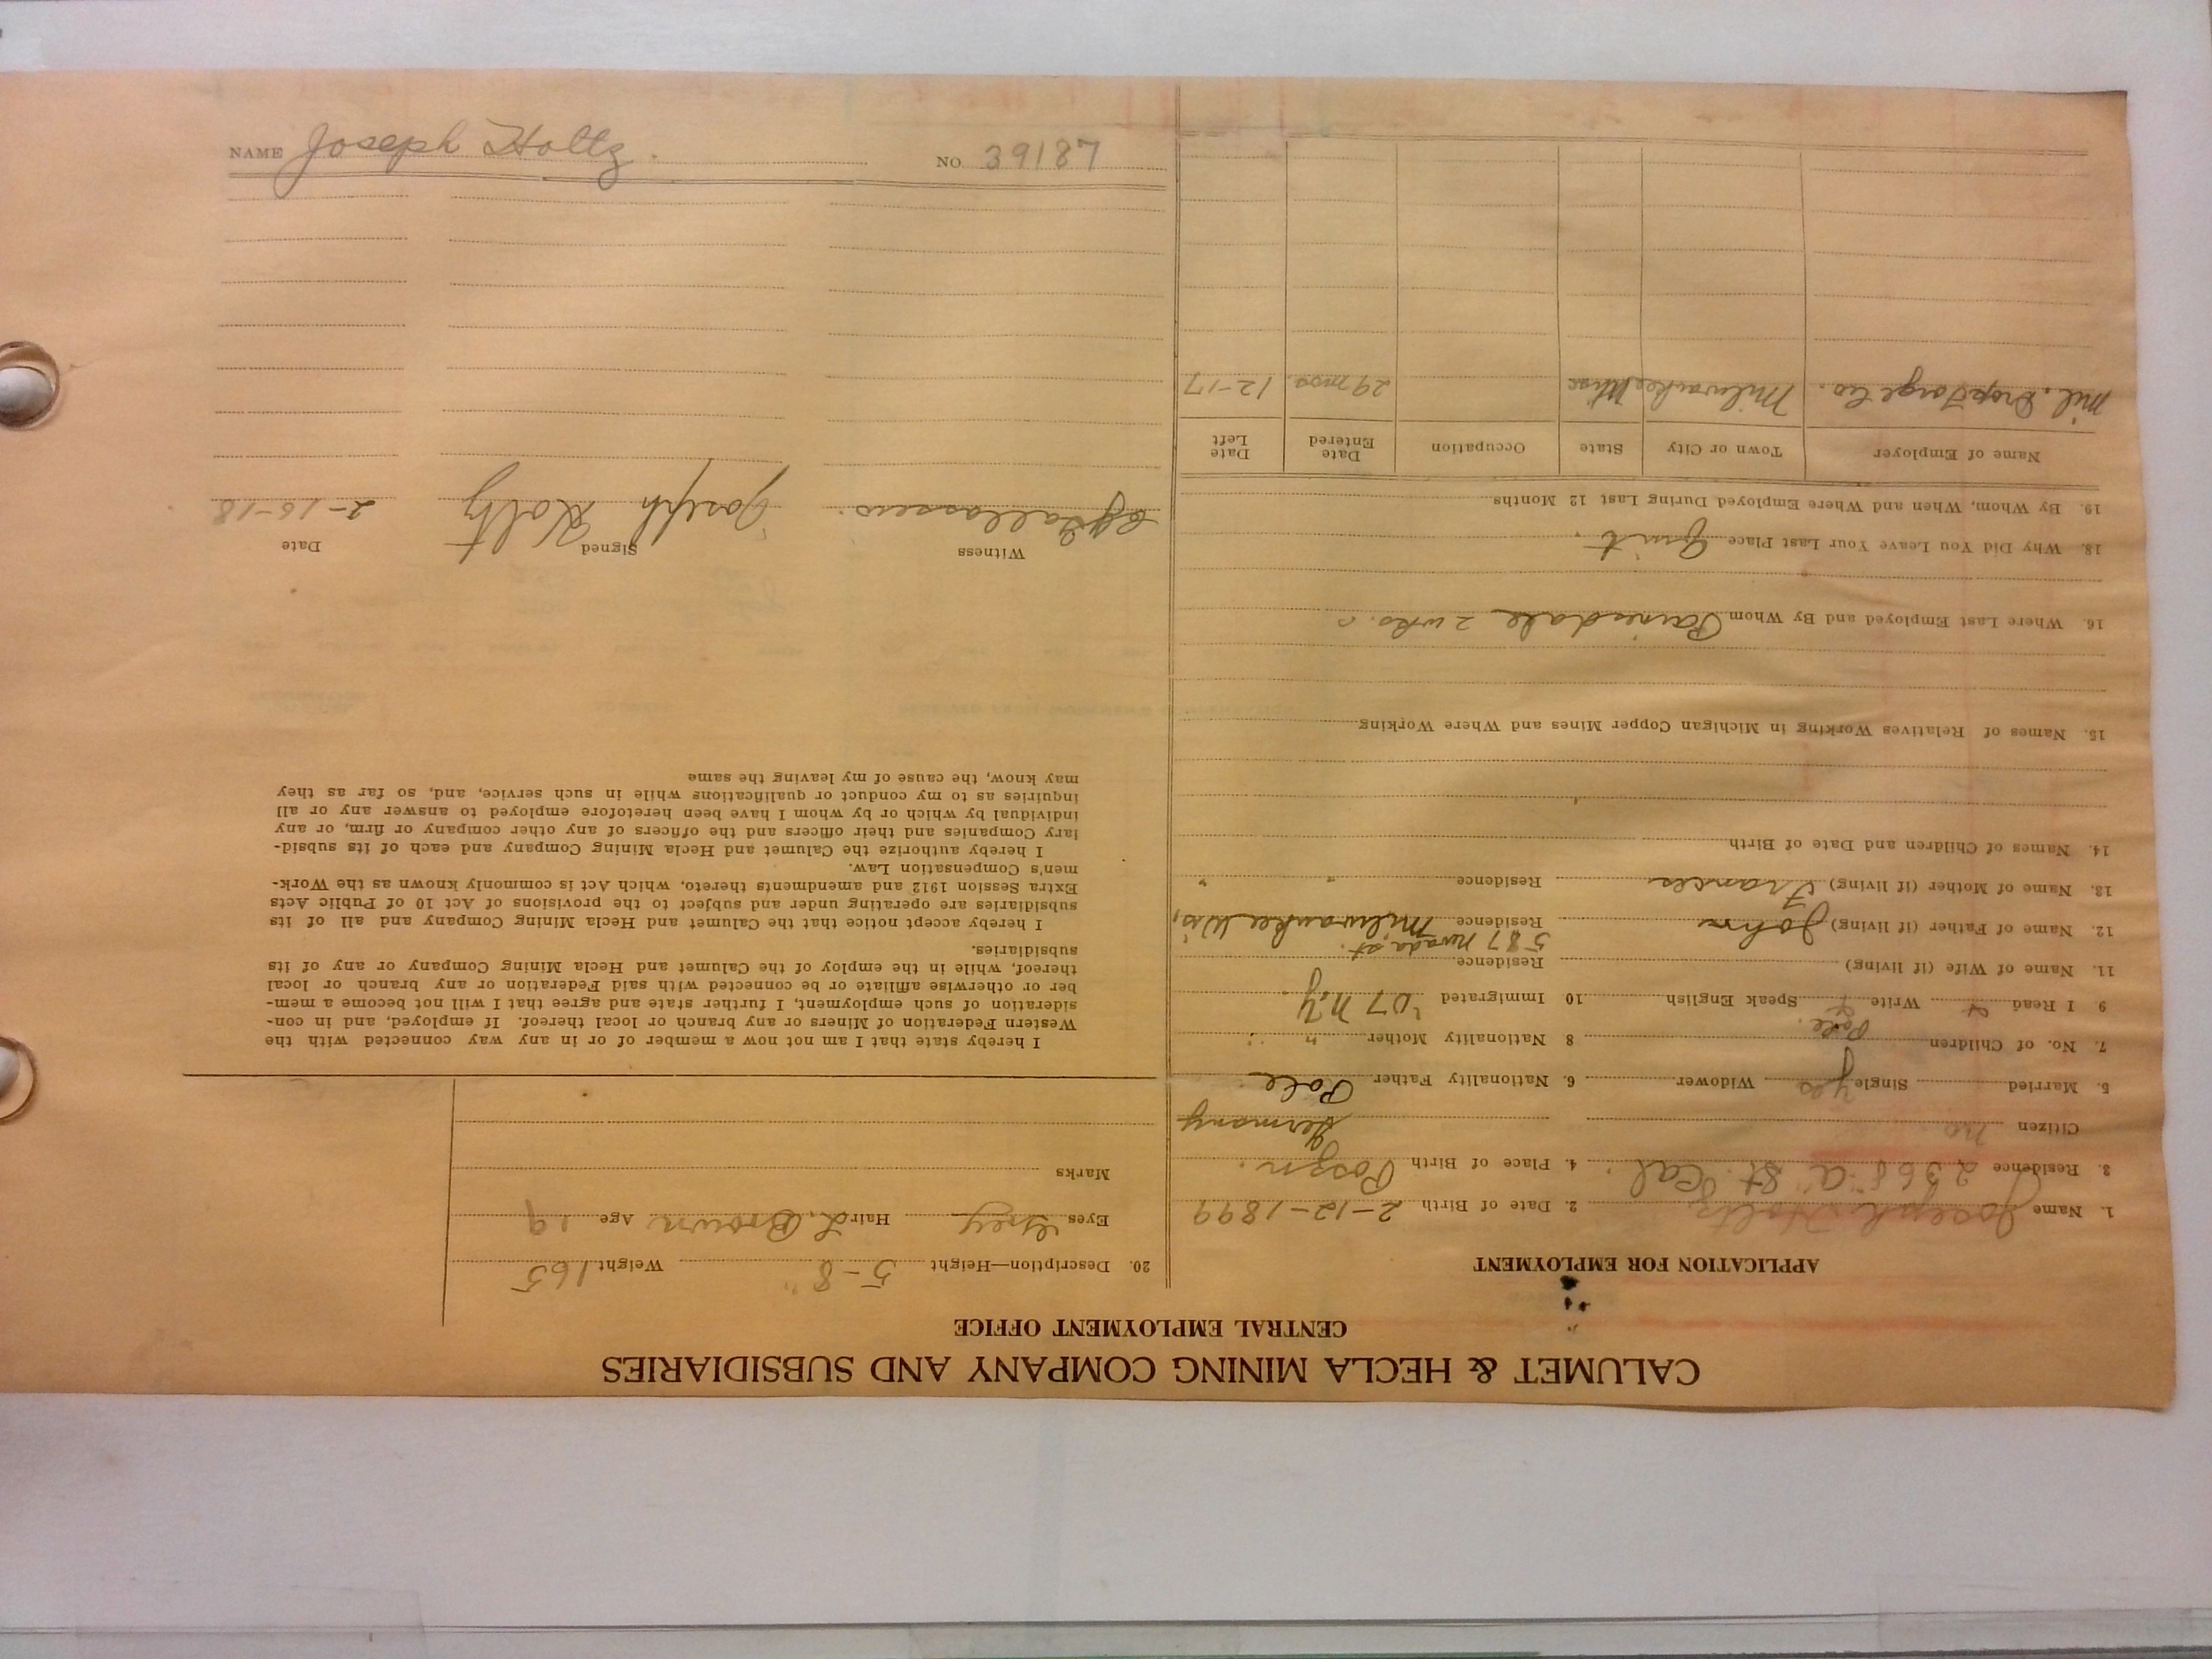 CALUMET & HECLA MINING COMPANY AND SUBSIDIARIES
CENTRAL EMPLOYMENT OFFICE
APPLICATION FOR EMPLOYMENT
1. Name Joseph Holtz 2. Date of Birth 2-12-1899
3. Residence 2368 "A" St. Cal. 4. Place of Birth Poszn.
Citizen no Germany
5. Married Single yes Widower 6. Nationality Father Pole
7. No. of Children 8 Nationality Mother " "
Pole.
9 I Read y Write y Speak English y 10 Immigrated '07 N.Y.
11. Name of Wife (if living) Residence
587 st.
12. Name of Father (if living) John Residence Milwaukee Wis,
13. Name of Mother (if living) Frances Residence " "
14. Names of Children and Date of Birth
15. Names of Relatives Working in Michigan Copper Mines and Where Working
16. Where Last Employed and By Whom Painesdale 2 wks.
18. Why Did You Leave Your Last Place Quit.
19. By Whom, When and Where Employed During Last 12 Months
Name of Employer Town or City State Occupation Date Entered Date Left
Mil. Drop Forge Co. Milwaukee 29 mos. 12-17
20. Description—Height 5-8" Weight 165
Eyes Grey Hair L. Brown Age 19
Marks
I hereby state that I am not now a member of or in any way connected with the
Western Federation of Miners or any branch or local thereof. If employed, and in con-
sideration of such employment, I further state and agree that I will not become a mem-
ber or otherwise affiliate or be connected with said Federation or any branch or local
thereof, while in the employ of the Calumet and Hecla Mining Company or any of its
subsidiaries.
I hereby accept notice that the Calumet and Hecla Mining Company and all of its
subsidiaries are operating under and subject to the provisions of Act 10 of Public Acts
Extra Session 1912 and amendments thereto, which Act is commonly known as the Work-
men's Compensation Law.
I hereby authorize the Calumet and Hecla Mining Company and each of its subsid-
iary Companies and their officers and the officers of any other company or firm, or any
individual by which or by whom I have been heretofore employed to answer any or all
inquiries as to my conduct or qualifications while in such service, and, so far as they
may know, the cause of my leaving the same
Witness Signed Date
Joseph Holtz 2-16-18
NAME Joseph Holtz. NO. 39187